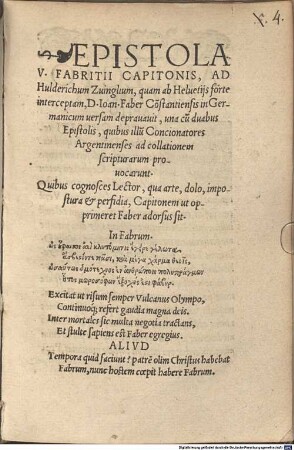 X. 4.
EPISTOLA
V. FABRITII CAPITONIS, AD
Hulderichum Zuinglium, quam ab Heluetijs forte
interceptam, D. Ioan. Faber Cōstantiensis in Ger-
manicum uersam deprauauit, una cū duabus
Epistolis, quibus illū Concionatores
Argentinenses ad collationem
scripturarum pro-
uocarunt.
Quibus cognosces Lector, qua arte, dolo, impo-
stura & perfidia, Capitonem ut op-
primeret Faber adorsus sit.
In Fabrum.
Excitat ut risum semper Vulcanus Olympo,
Continuoq; refert gaudia magna deis.
Inter mortales sic multa negotia tractans,
Et stulte sapiens est Faber egregius.
ALIVD
Tempora quid faciunt? patrē olim Christus habebat
Fabrum, nunc hostem cœpit habere Fabrum.